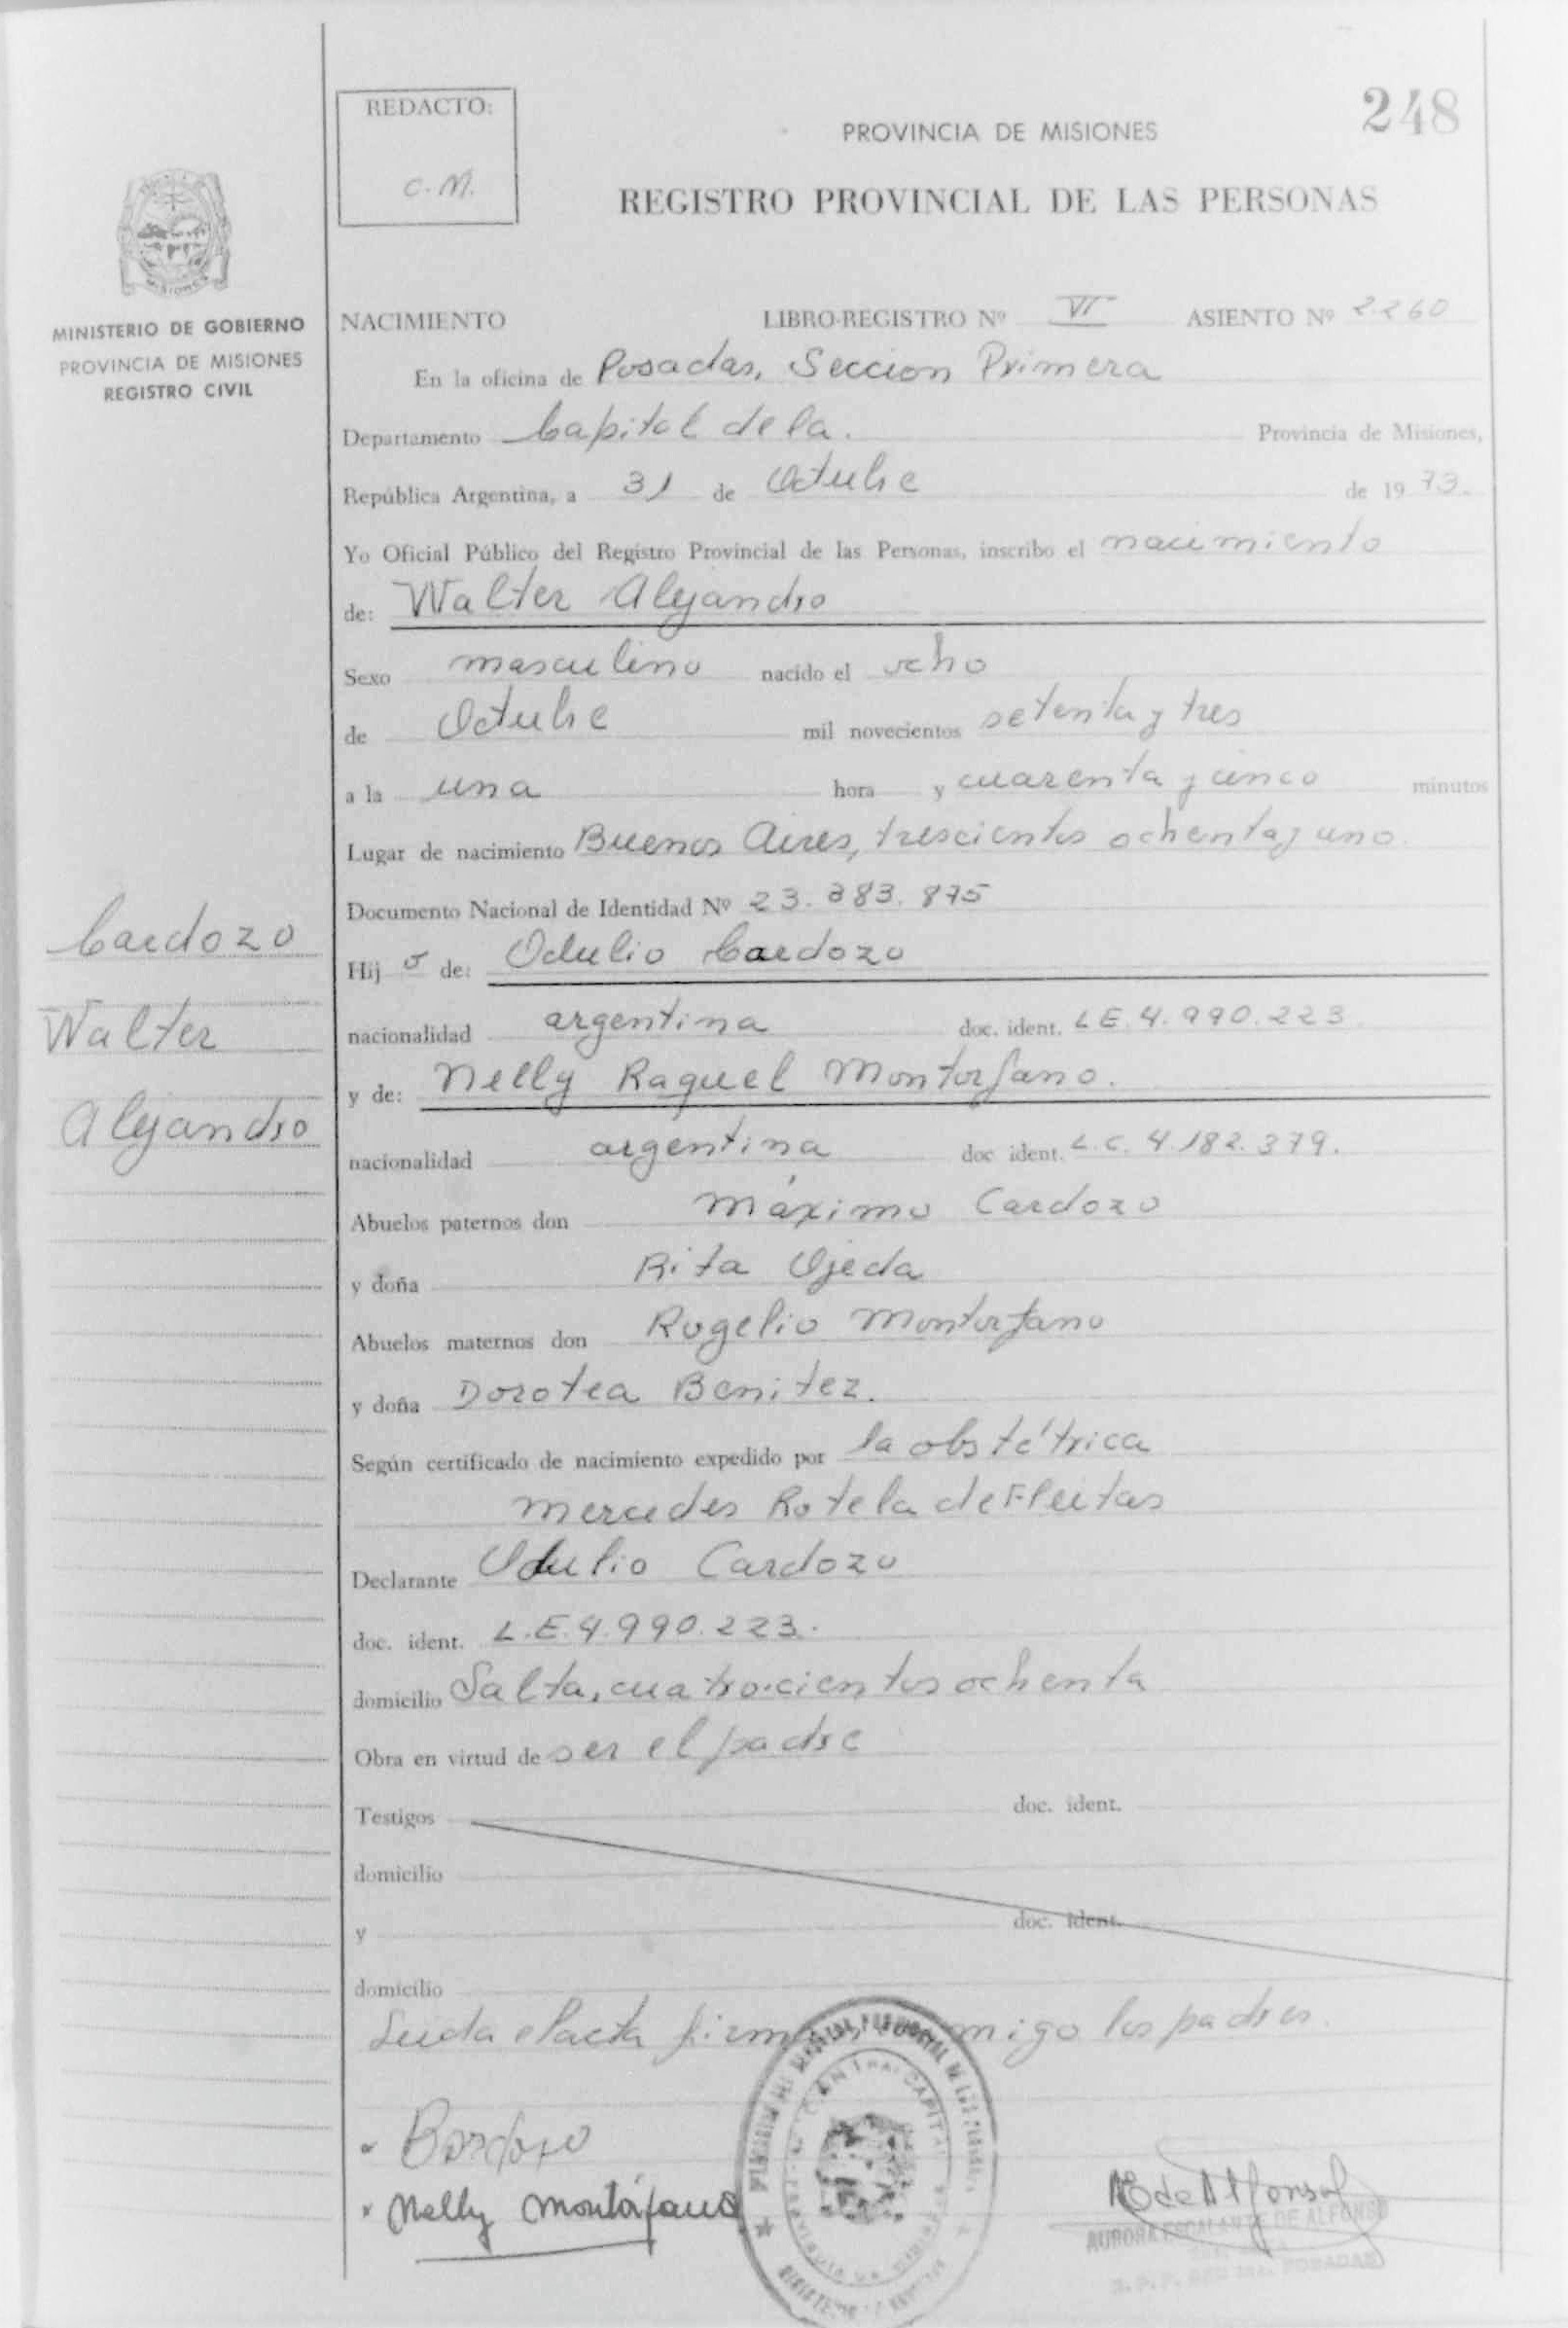 248
REDACTO:
C.M.
PROVINCIA DE MISIONES
REGISTRO PROVINCIAL DE LAS PERSONAS
MISIONES
MINISTERIO DE GOBIERNO
PROVINCIA DE MISIONES
REGISTRO CIVIL
NACIMIENTO LIBRO-REGISTRO Nº VI ASIENTO Nº 2.260
En la oficina de Posadas, Seccion Primera
Departamento Capital de la. Provincia de Misiones,
República Argentina, a 31 de Octubre de 1973.
Yo Oficial Público del Registro Provincial de las Personas, inscribo el nacimiento
de: Walter Alejandro
Sexo masculino nacido el ocho
de Octubre mil novecientos setenta y tres
a la una hora y cuarenta y cinco minutos
Lugar de nacimiento Buenos Aires, trescientos ochenta y uno.
Documento Nacional de Identidad Nº 23.383.875
Cardozo
Walter
Alejandro
Hijo de: Odulio Cardozo
nacionalidad argentina doc. ident. LE. 4.990.223.
y de: Nelly Raquel Montorfano.
nacionalidad argentina doc ident. L.C. 4.182.379.
Abuelos paternos don Máximo Cardozo
y doña Rita Ojeda
Abuelos maternos don Rogelio Montorfano
y doña Dorotea Benitez.
Según certificado de nacimiento expedido por la obstétrica
Mercedes Rotela de Fleitas
Declarante Odulio Cardozo
doc. ident. L.E. 4.990.223.
domicilio Salta, cuatrocientos ochenta
Obra en virtud de ser el padre
Testigos doc. ident.
domicilio
y doc. ident.
domicilio
Leida el acta firman conmigo los padres.
Nelly Montorfano
AURORA ESCALANTE DE ALFONSO
POSADAS